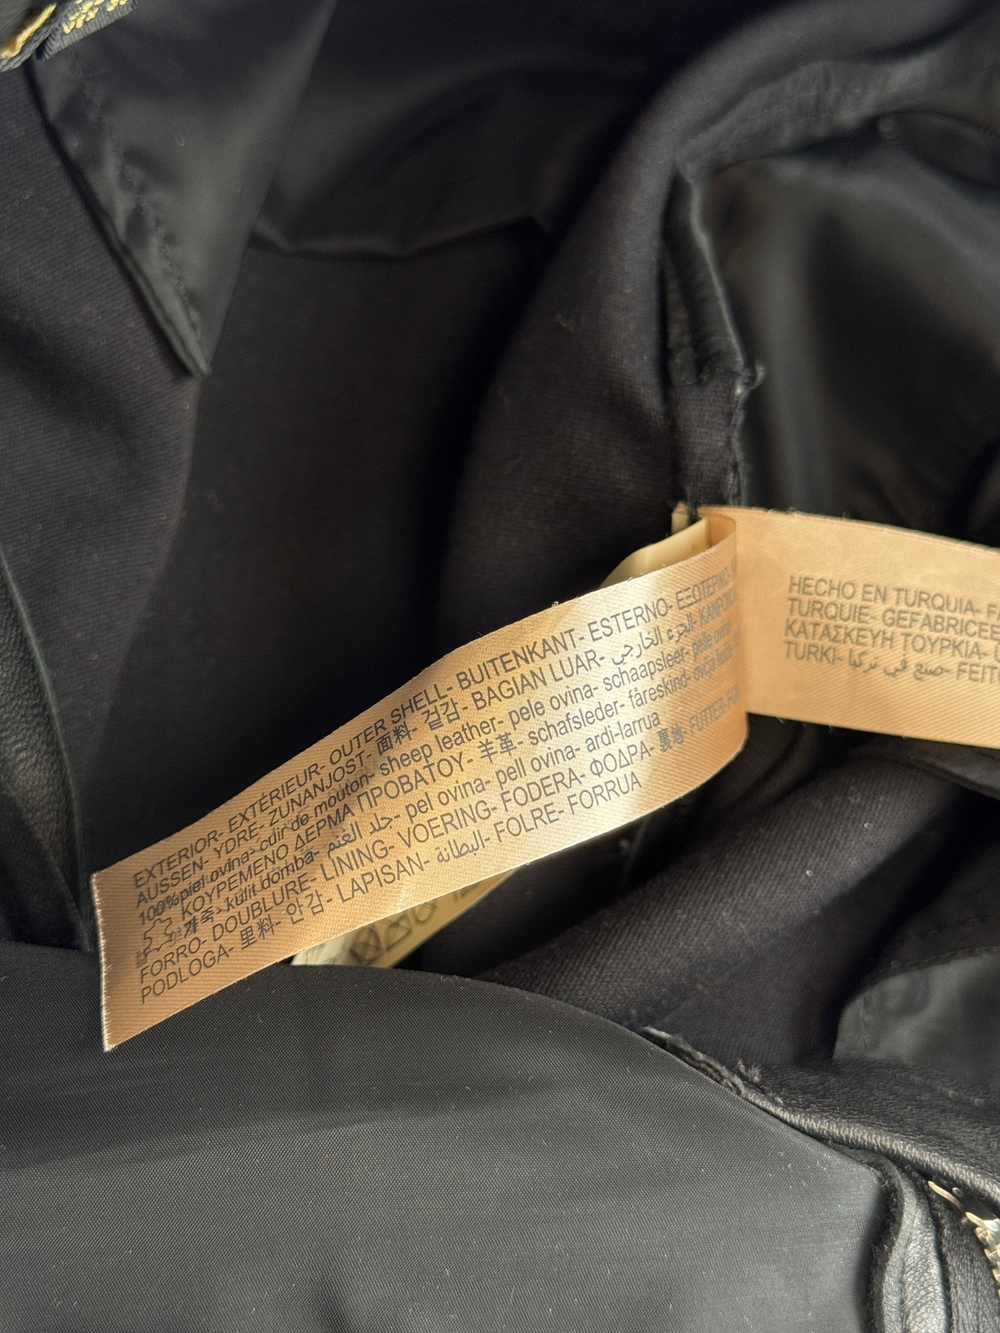 EXTERIOR- EXTÉRIEUR- OUTER SHELL- BUITENKANT- ESTERNO- ΕΞΩΤΕΡΙΚΟ-
AUSSEN- YDRE- ZUNANJOST- 面料- 겉감- BAGIAN LUAR- الجزء الخارجي-
100%piel ovina- cuir de mouton- sheep leather- pele ovina- schaapsleer- pelle
ΚΟΥΡΕΜΕΝΟ ΔΕΡΜΑ ΠΡΟΒΑΤΟΥ- 羊革- schafsleder- fåreskind- ovčja
kulit domba- جلد الغنم- pel ovina- pell ovina- ardi-larrua
FORRO- DOUBLURE- LINING- VOERING- FODERA- ΦΟΔΡΑ- 裏地- FUTTER-
PODLOGA- 里料- 안감- LAPISAN- البطانة- FOLRE- FORRUA
HECHO EN TURQUIA-
TURQUIE- GEFABRICEE
ΚΑΤΑΣΚΕΥΗ ΤΟΥΡΚΙΑ-
TURKI- صنع في تركيا- FEITO